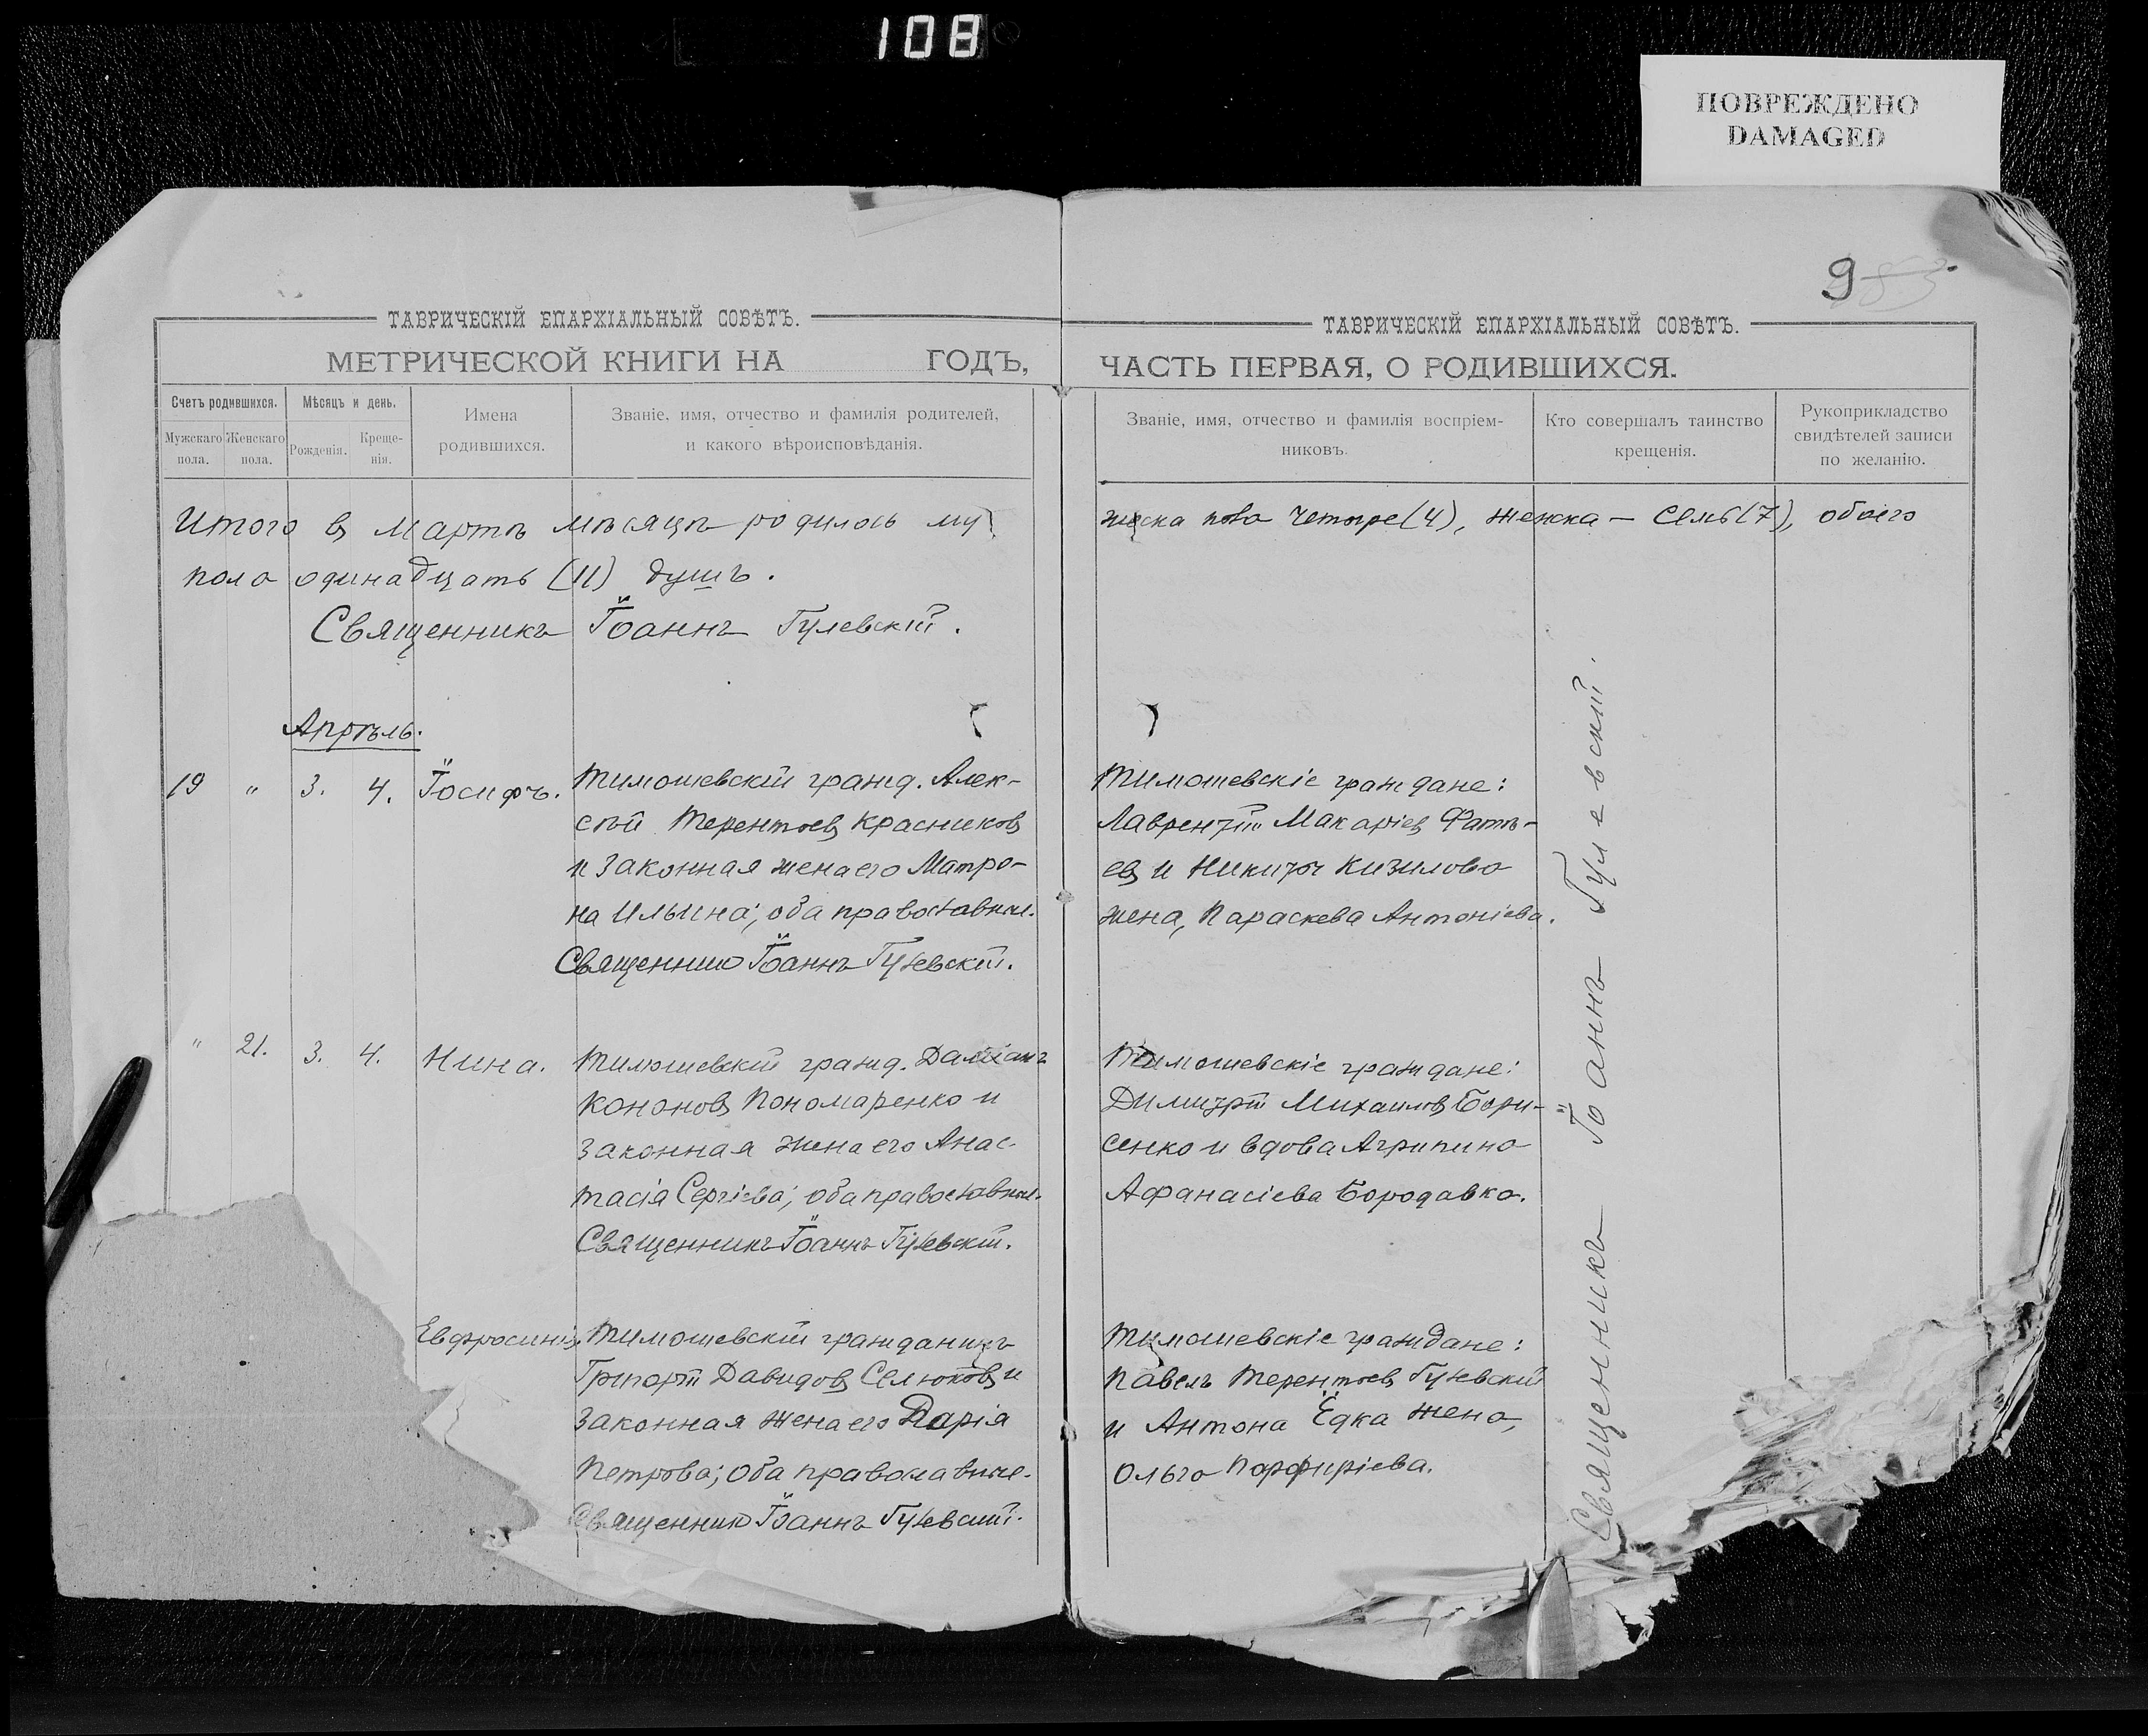 108
ПОВРЕЖДЕНО
DAMAGED
9
ТАВРИЧЕСКІЙ ЕПАРХІАЛЬНЫЙ СОВѢТЪ.
МЕТРИЧЕСКОЙ КНИГИ НА ГОДЪ,
Счетъ родившихся.
Мужскаго пола.
Женскаго пола.
Мѣсяцъ и день.
Рожденія.
Креще-
нія.
Имена
родившихся.
Званіе, имя, отчество и фамилія родителей,
и какого вѣроисповѣданія.
Итого въ Мартѣ мѣсяцѣ родилось му
пола одинадцать (11) душъ.
Священникъ Іоаннъ Гулевскій.
Апрѣль.
19 " 3. 4. Іосифъ.
Тимошевскій гражд. Алек-
сѣй Терентьевъ Красниковъ
и законная жена его Матро-
на Ильина; оба православные.
Священникъ Іоаннъ Гулевскій.
" 21. 3. 4. Нина.
Тимошевскій гражд. Даміанъ
Кононовъ Пономаренко и
законная жена его Анас-
тасія Сергіева; оба православные.
Священникъ Іоаннъ Гулевскій.
Евфросинія
Тимошевскій гражданинъ
Григорій Давидовъ Селюковъ и
законная жена его Дарія
Петрова; оба православные.
Священникъ Іоаннъ Гулевскій.
ТАВРИЧЕСКІЙ ЕПАРХІАЛЬНЫЙ СОВѢТЪ.
ЧАСТЬ ПЕРВАЯ, О РОДИВШИХСЯ.
Званіе, имя, отчество и фамилія воспріем-
никовъ.
Кто совершалъ таинство
крещенія.
Рукоприкладство
свидѣтелей записи
по желанію.
жска пола четыре (4), женска — семь (7), обоего
Тимошевскіе граждане:
Лаврентій Макаріевъ Фатѣ-
евъ и Никиты Кизилова
жена, Параскева Антоніева.
Тимошевскіе граждане:
Димитрій Михаиловъ Бори-
сенко и вдова Агрипина
Афанасіева Бородавка.
Тимошевскіе граждане:
Павелъ Терентьевъ Гулевскій
и Антона Едка жена,
Ольга Порфиріева.
Священникъ Іоаннъ Гулевскій.